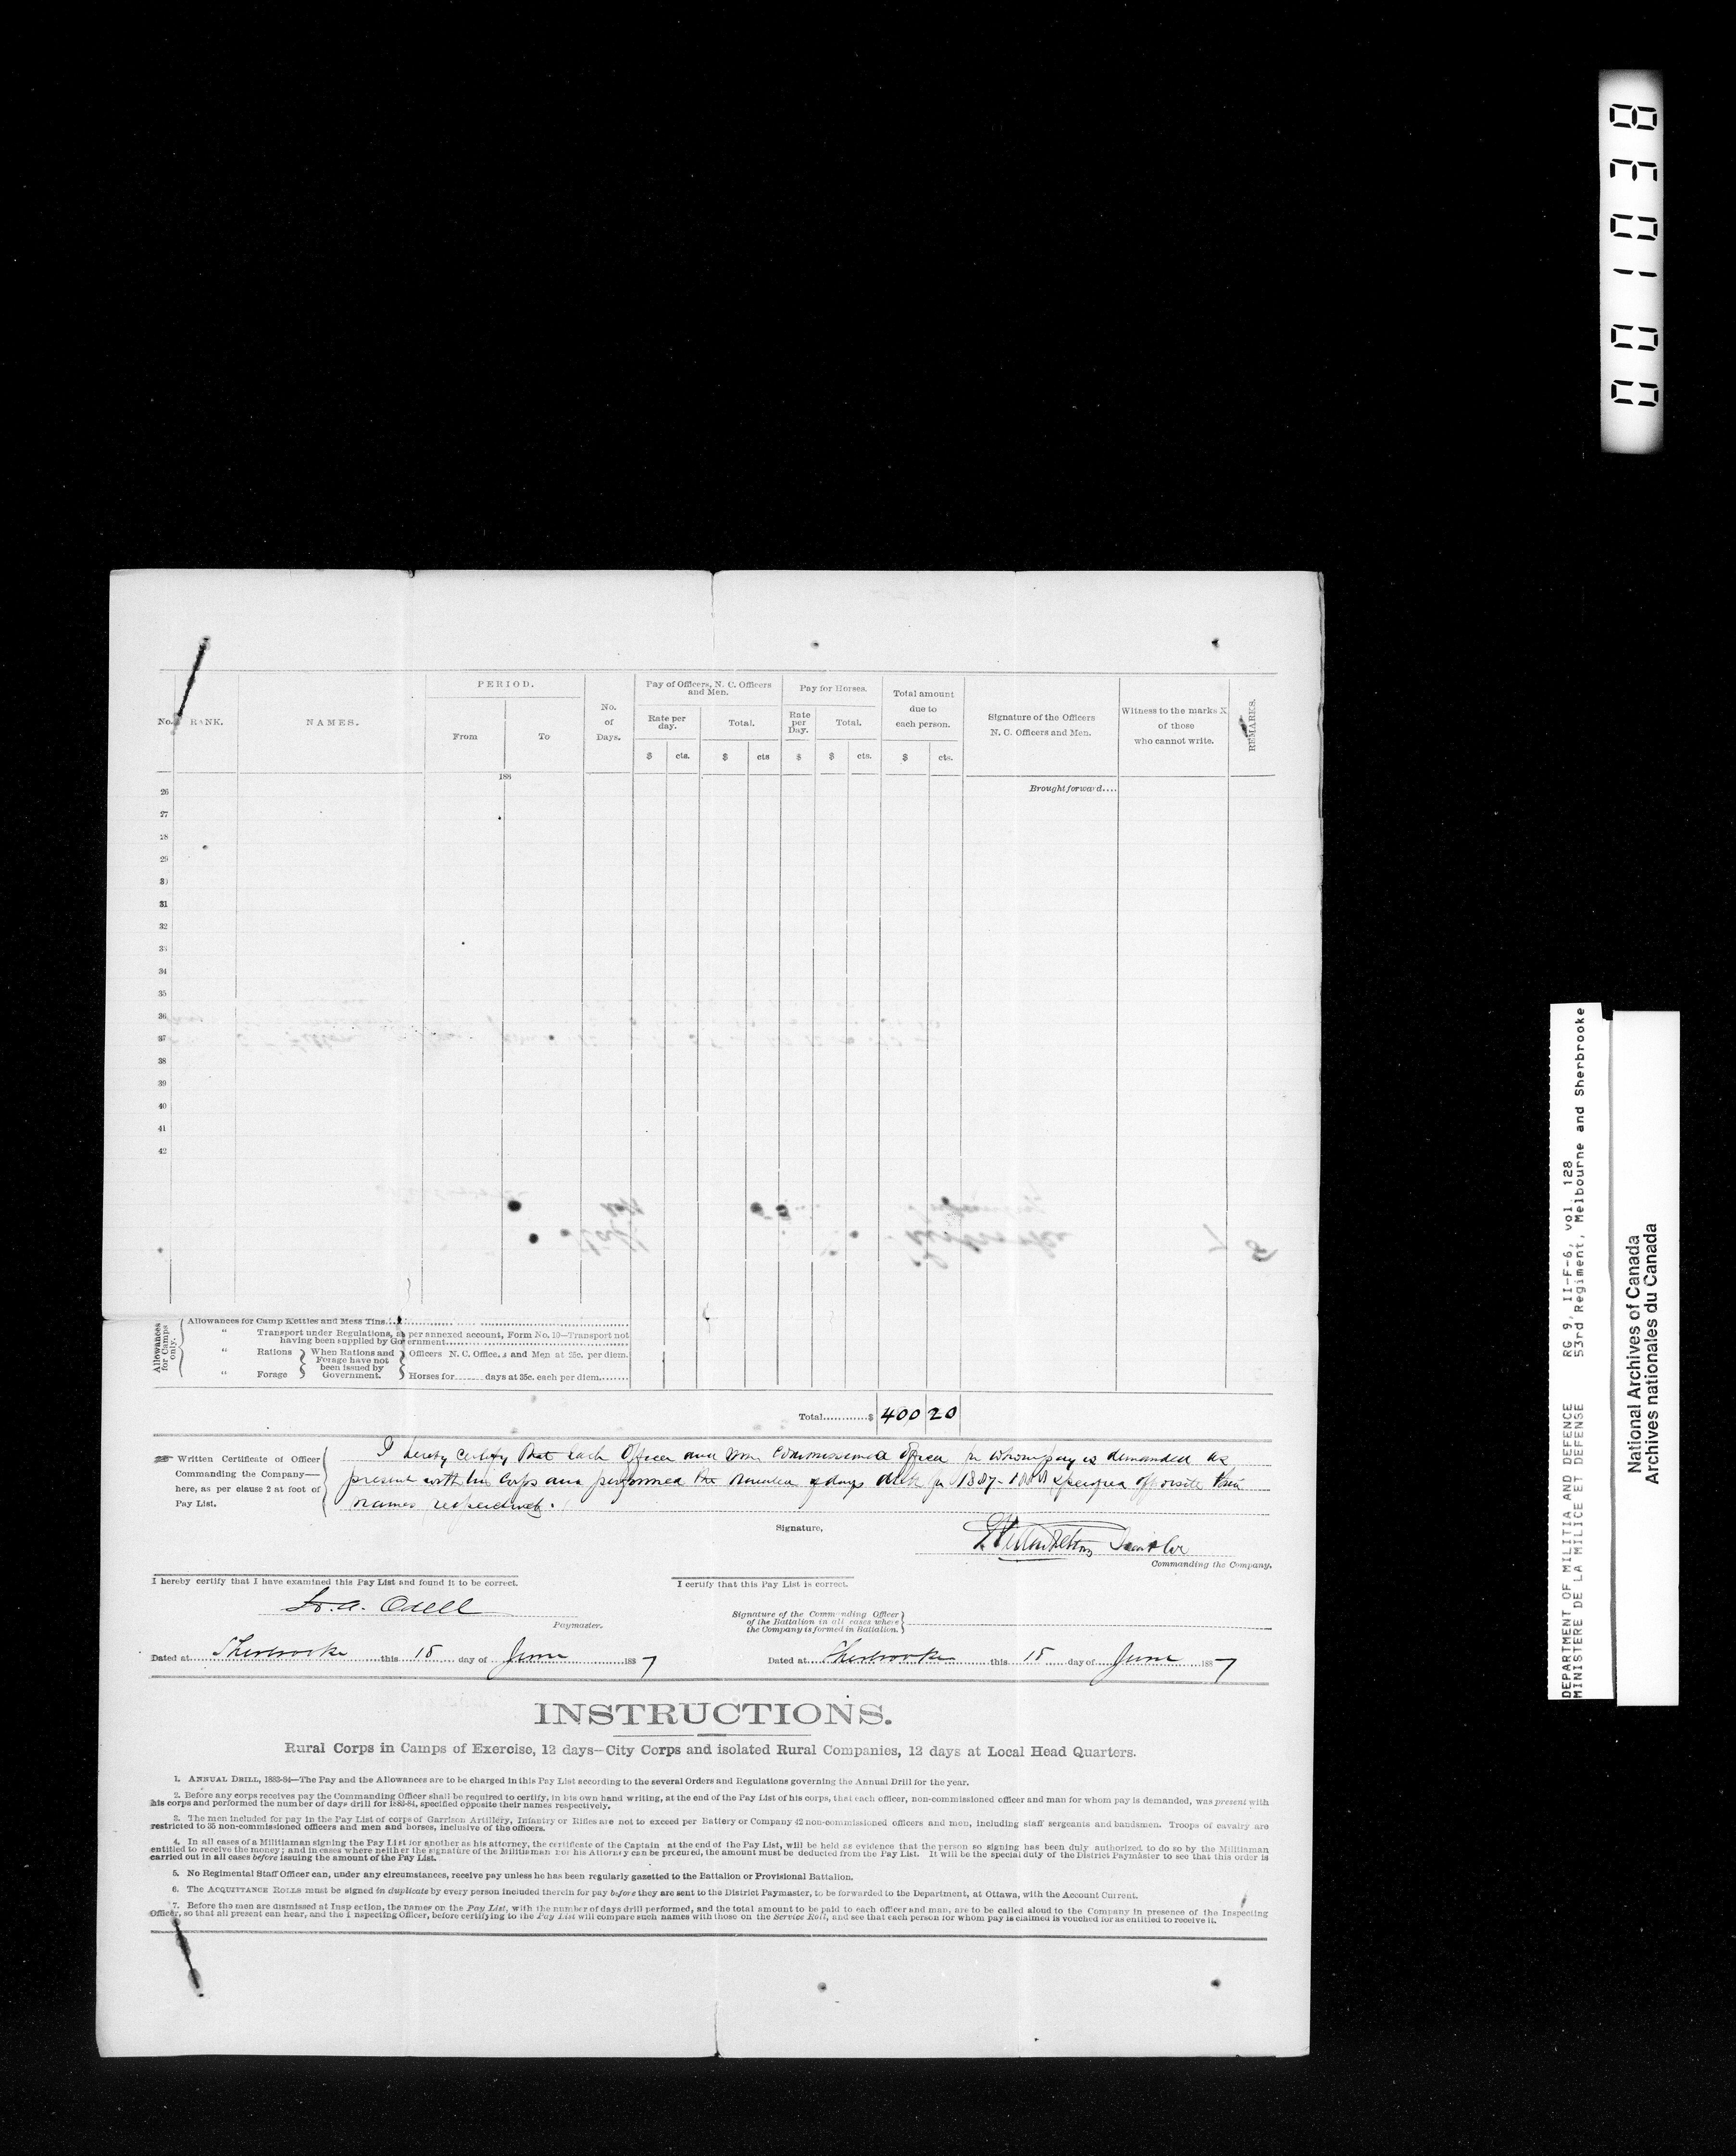 001038
PERIOD.
Pay of Officers, N. C. Officers and Men.
Pay for Horses.
Total amount due to each person.
No.
RANK.
NAMES.
From
To
No. of Days.
Rate per day.
Total.
Rate per Day.
Total.
Signature of the Officers N. C. Officers and Men.
Witness to the marks X of those who cannot write.
REMARKS.
$ cts. $ cts $ $ cts. $ cts.
188
26 Brought forward....
27
28
29
30
31
32
33
34
35
36
37
38
39
40
41
42
Allowances for Camps only.
Allowances for Camp Kettles and Mess Tins
“ Transport under Regulations, as per annexed account, Form No. 10—Transport not
having been supplied by Government
“ Rations
When Rations and Forage have not been issued by Government.
Officers N. C. Officers and Men at 25c. per diem.
“ Forage
Horses for........days at 35c. each per diem........
Total............$ 400 20
Written Certificate of Officer
Commanding the Company—
here, as per clause 2 at foot of
Pay List.
I hereby certify that each Officer and non commissioned officer for whom pay is demanded was
present with his Corps and performed the number of days drill for 1887- specified opposite their
names respectively.
Signature,
Commanding the Company.
I hereby certify that I have examined this Pay List and found it to be correct.
I certify that this Pay List is correct.
Odell
Paymaster.
Signature of the Commanding Officer
of the Battalion in all cases where
the Company is formed in Battalion.
Dated at Sherbrooke this 15 day of June 1887
Dated at Sherbrooke this 15 day of June 1887
INSTRUCTIONS.
Rural Corps in Camps of Exercise, 12 days—City Corps and isolated Rural Companies, 12 days at Local Head Quarters.
1. ANNUAL DRILL, 1883-84—The Pay and the Allowances are to be charged in this Pay List according to the several Orders and Regulations governing the Annual Drill for the year.
2. Before any corps receives pay the Commanding Officer shall be required to certify, in his own hand writing, at the end of the Pay List of his corps, that each officer, non-commissioned officer and man for whom pay is demanded, was present with
his corps and performed the number of days drill for 1883-84, specified opposite their names respectively.
3. The men included for pay in the Pay List of corps of Garrison Artillery, Infantry or Rifles are not to exceed per Battery or Company 42 non-commissioned officers and men, including staff sergeants and bandsmen. Troops of cavalry are
restricted to 35 non-commissioned officers and men and horses, inclusive of the officers.
4. In all cases of a Militiaman signing the Pay List for another as his attorney, the certificate of the Captain at the end of the Pay List, will be held as evidence that the person so signing has been duly authorized to do so by the Militiaman
entitled to receive the money; and in cases where neither the signature of the Militiaman nor his Attorney can be procured, the amount must be deducted from the Pay List. It will be the special duty of the District Paymaster to see that this order is
carried out in all cases before issuing the amount of the Pay List.
5. No Regimental Staff Officer can, under any circumstances, receive pay unless he has been regularly gazetted to the Battalion or Provisional Battalion.
6. The ACQUITTANCE ROLLS must be signed in duplicate by every person included therein for pay before they are sent to the District Paymaster, to be forwarded to the Department, at Ottawa, with the Account Current.
7. Before the men are dismissed at Inspection, the names on the Pay List, with the number of days drill performed, and the total amount to be paid to each officer and man, are to be called aloud to the Company in presence of the Inspecting
Officer, so that all present can hear, and the Inspecting Officer, before certifying to the Pay List will compare such names with those on the Service Roll, and see that each person for whom pay is claimed is vouched for as entitled to receive it.
DEPARTMENT OF MILITIA AND DEFENCE RG 9, II-F-6, vol 128
MINISTERE DE LA MILICE ET DEFENSE 53rd Regiment, Melbourne and Sherbrooke
National Archives of Canada
Archives nationales du Canada